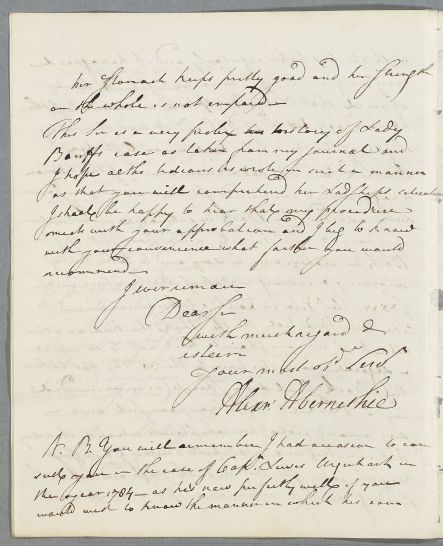 her Stomach keeps pretty good and her Strength
on the whole is not impaired –
This Sir is a very prolix history of Lady
Banffs case as taken from my Journal and
I hope altho tedious its wrote in such a manner
as that you will comprehend her Ladyships situation
I shall be happy to hear that my procedure
meets with your approbation and I beg to know
with your convenience what farther you would
recommend –
I ever remain
Dear Sir
with much regard &
esteem
Your most obt. Servt
Alexr. Abernethie
N. B. You will remember I had occasion to con
sult you in the case of Capn. Lewis Urquhart in
the year 1784 – as he's now perfectly well if you
would wish to know the manner in which his cure